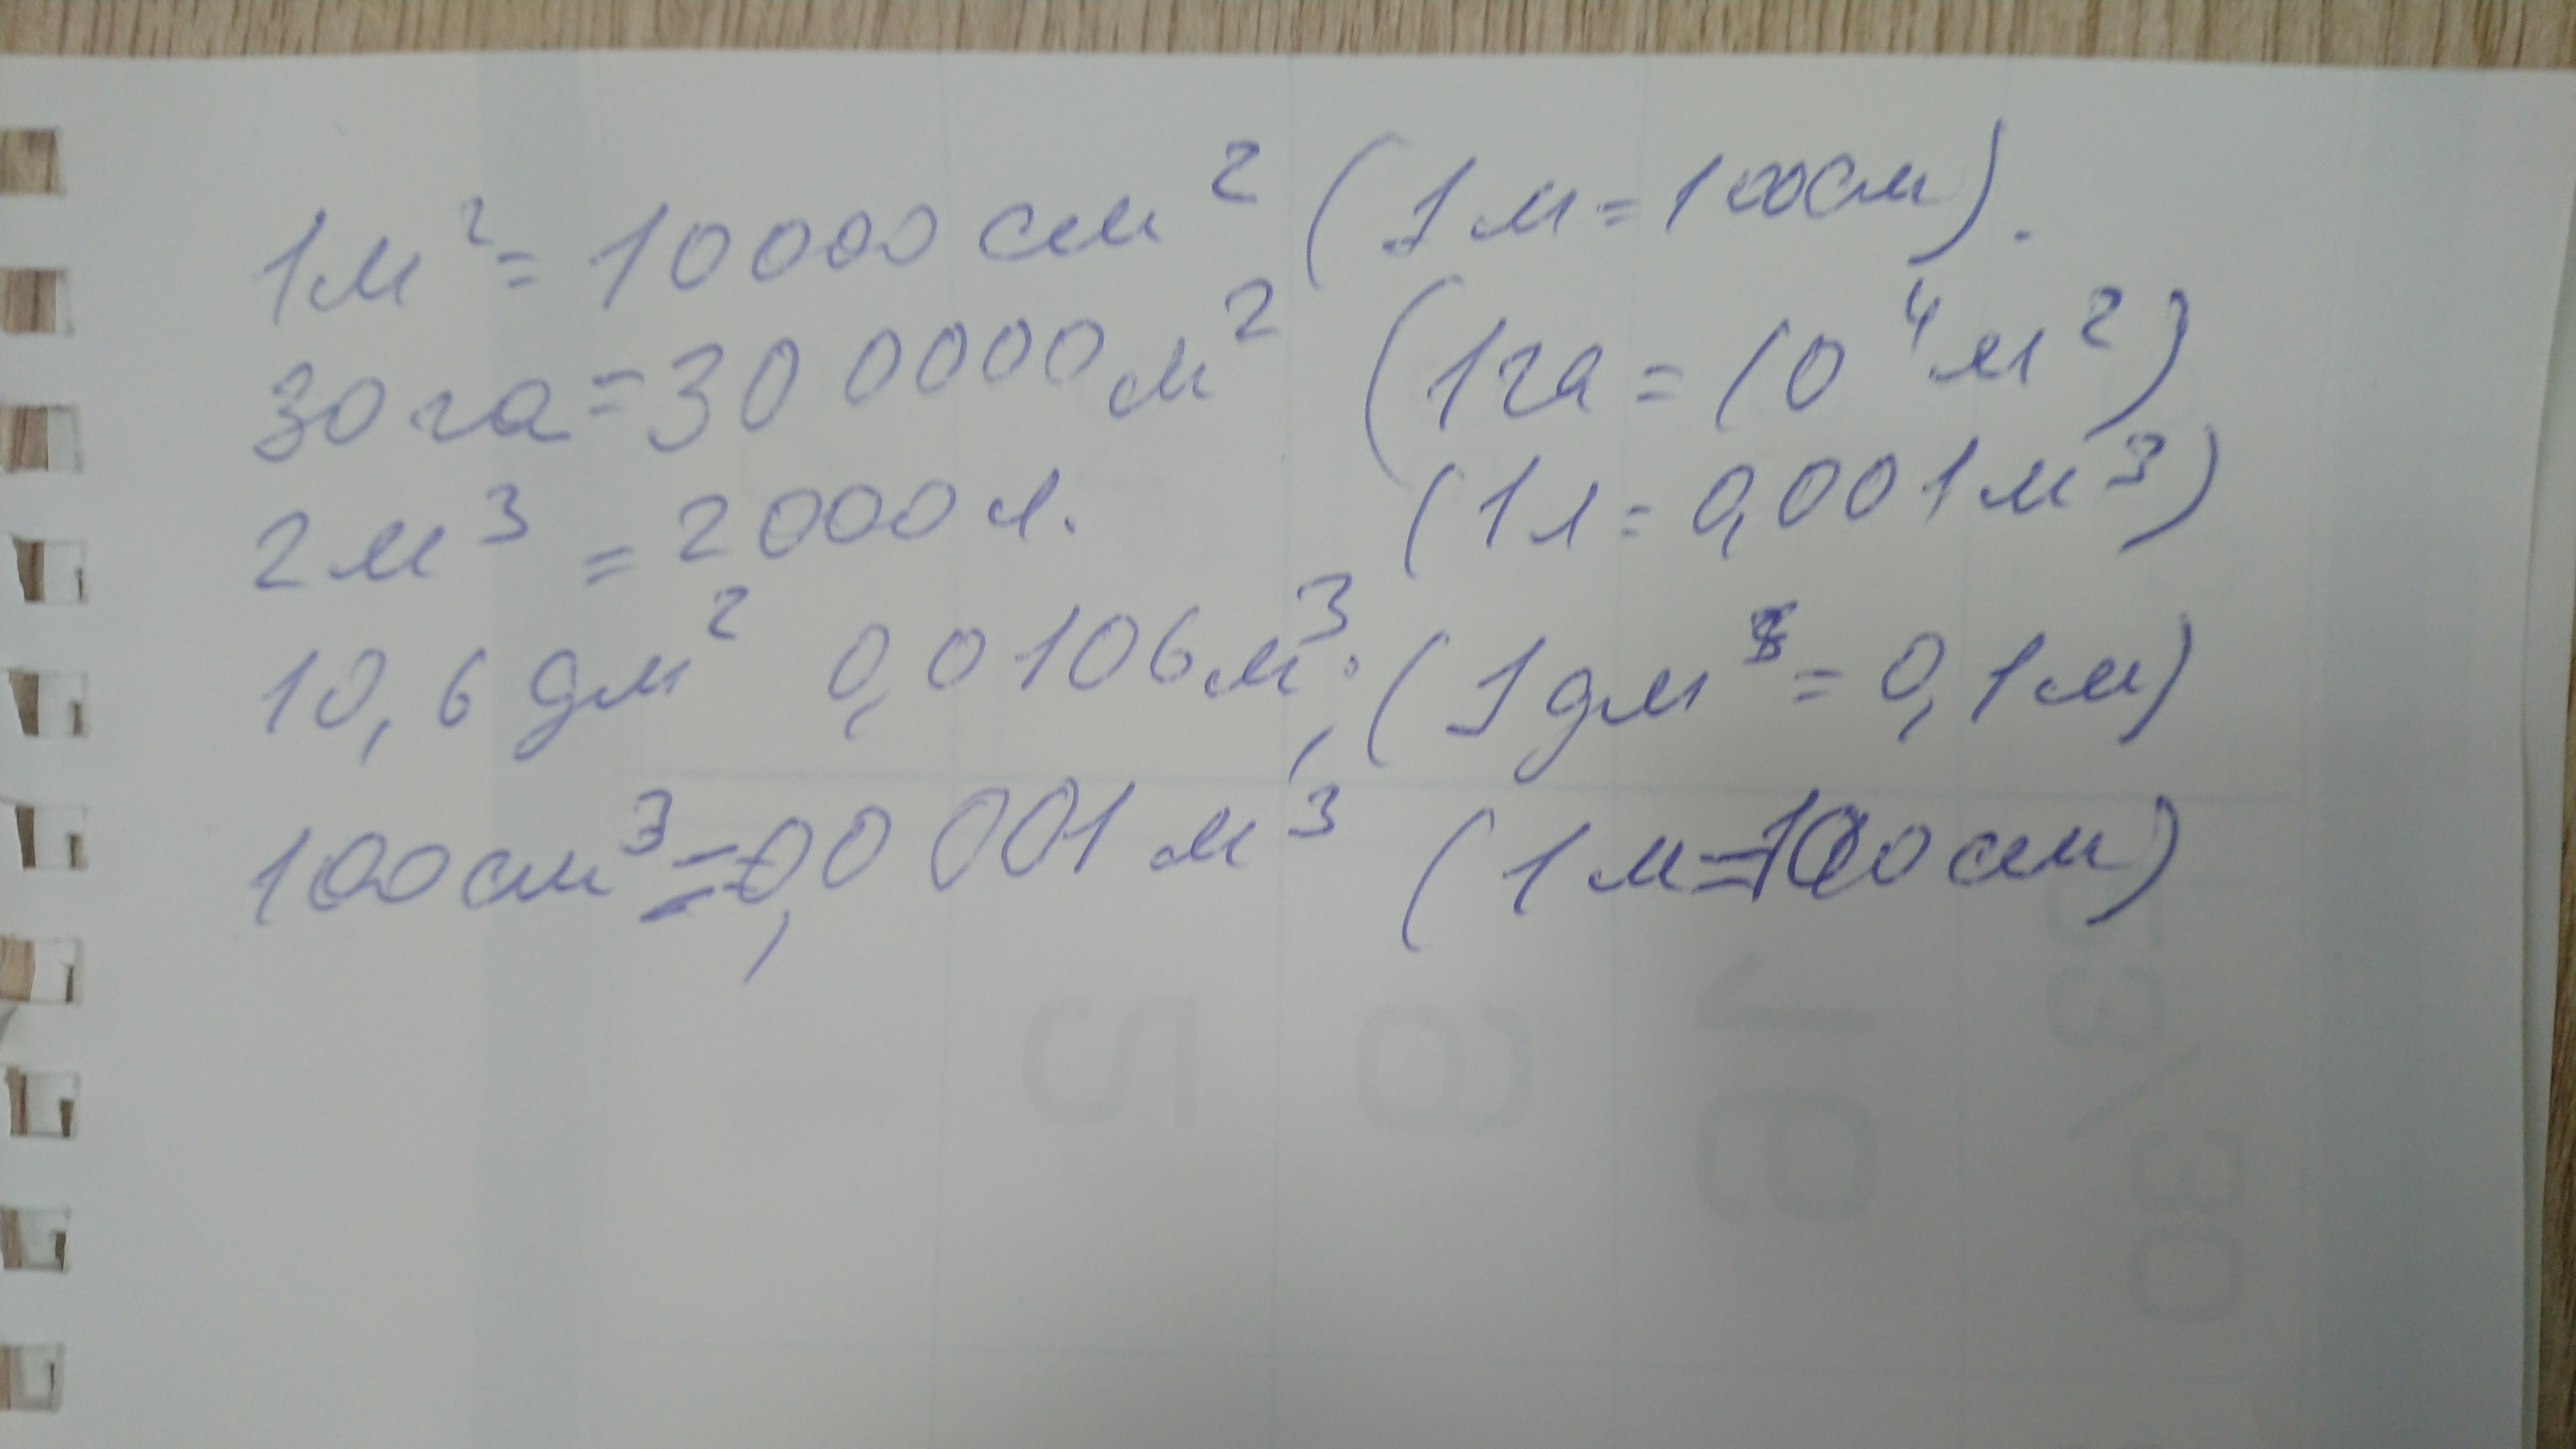 1м² = 10000 см² (1м = 100см).
30 га = 300000 м² (1га = 10⁴ м²)
2м³ = 2000 л. (1л = 0,001м³)
10,6 дм² 0,0106м³; (1дм = 0,1м)
100см³ = 0,0001 м³ (1м = 100см)